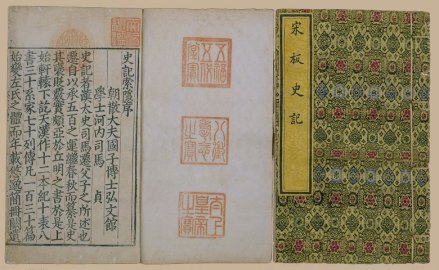 宋板史記
五福五代堂寶
八徵耄念之寶
太上皇帝之寶
史記索隱序
朝散大夫國子博士弘文館
學士河內司馬貞
史記者漢太史司馬遷父子之所述也
遷自以承五百之運繼春秋而纂是史
其褒貶覈實頗亞於丘明之書於是上
始軒轅下訖天漢作十二本紀十表八
書三十世家七十列傳凡一百三十篇
始變左氏之體而年載悠邈簡冊闕遺